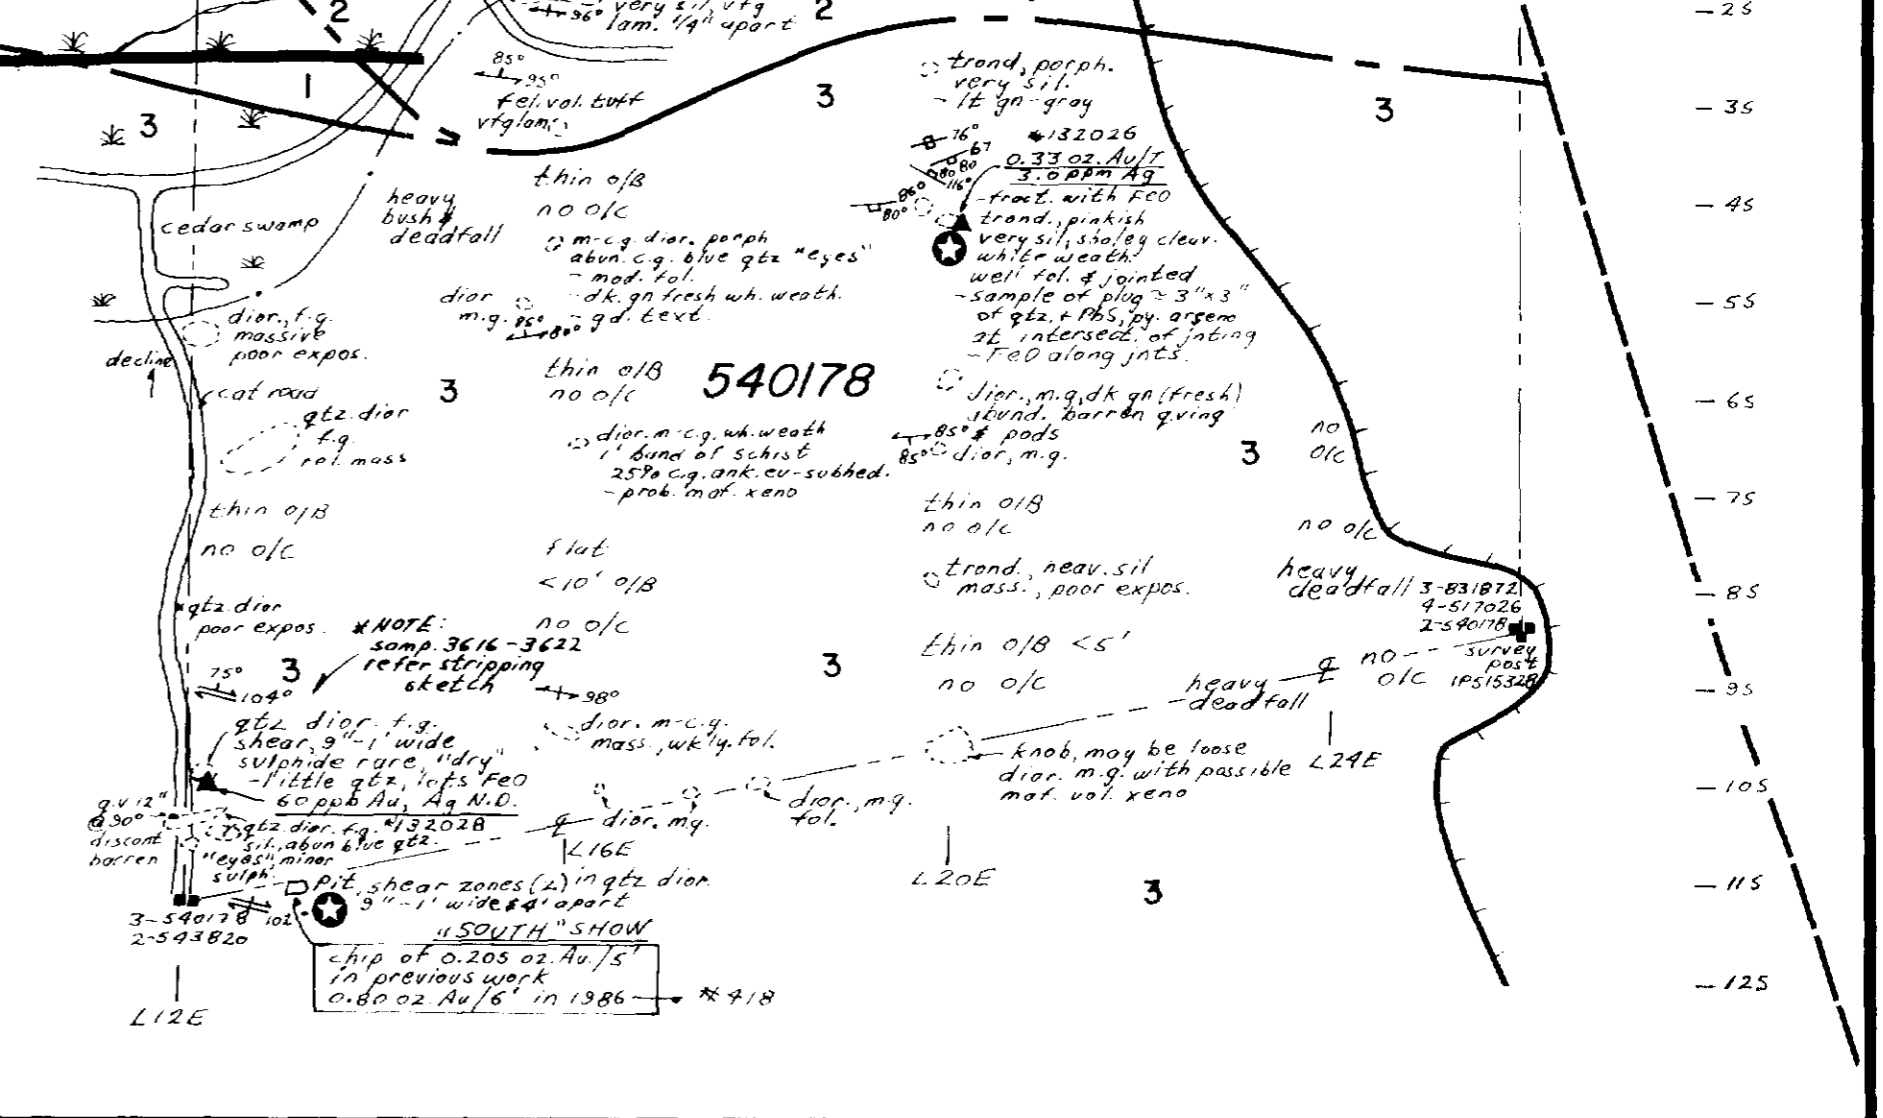 2
96° very sil, vfg
lam. 1/4" apart
2
- 2S
85°
95°
fel. vol. tuff
vfg lam.
1
3
3
trond, porph.
very sil.
- lt gn-gray
3
- 3S
76°
67
#132026
0.33 oz. Au/T
3.0 ppm Ag
80
116°
86°
80°
- fract. with FeO
trond., pinkish
very sil, shaley cleav.
white weath.
well fol. & jointed
- sample of plug ≈ 3"x3"
of qtz. + PbS, py. arseno
at intersect. of jnting
- FeO along jnts.
- 4S
thin o/B
no o/c
heavy
bush &
deadfall
cedar swamp
m-c.g. dior. porph
abun. c.g. blue qtz "eyes"
- mod. fol.
- dk. gn fresh wh. weath.
- gd. text.
dior
m.g.
85°
80°
- 5S
dior., f.g.
massive
poor expos.
decline
thin o/B
no o/c
540178
3
cat road
qtz. dior
f.g.
rel. mass
dior., m.g, dk gn (fresh)
abund. barren q.ving
& pods
85°
85°
dior, m.g.
- 6S
no
o/c
3
dior. m-c.g. wh. weath
1' band of schist
25% c.g. ank. eu-subhed.
- prob. maf. xeno
- 7S
thin o/B
no o/c
thin o/B
no o/c
no o/c
flat
<10' o/B
no o/c
trond., heav. sil
mass., poor expos.
heavy
deadfall
3-831872
4-517026
2-540178
- 8S
survey
post
1P515328
qtz dior
poor expos.
*NOTE:
samp. 3616-3622
refer stripping
sketch
3
75°
104°
98°
thin o/B <5'
no o/c
3
no
o/c
heavy
deadfall
- 9S
qtz dior. f.g.
shear, 9"-1' wide
sulphide rare, "dry"
- little qtz, lots FeO
60 ppb Au, Ag N.D.
#132028
dior. m-c.g.
mass., wkly. fol.
knob, may be loose
dior. m.g. with possible
maf. vol. xeno
L24E
- 10S
q.v 12"
@ 90°
discont
barren
qtz. dior. f.g.
sil., abun blue qtz.
"eyes", minor
sulph.
dior. m.g.
dior., m.g.
fol.
L16E
L20E
3
- 11S
pit, shear zones (2) in qtz dior.
9"-1' wide & 4' apart
3-540178
2-543820
102
"SOUTH" SHOW
chip of 0.205 oz. Au./5'
in previous work
0.80 oz. Au/6' in 1986
#418
- 12S
L12E